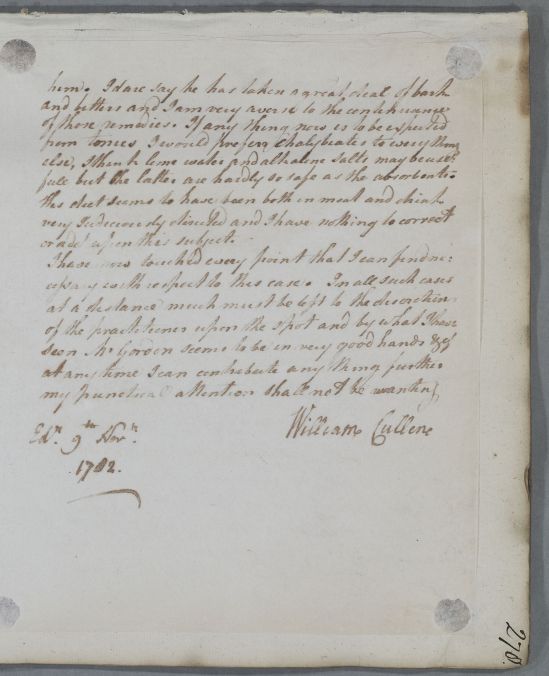 him. I dare say he has taken a great deal of bark
and bitters and I am very averse to the continuance
of those remedies. If any thing now is to be expected
from tonics I would prefer Chalybeates to every thing
else, I think lime water and alkaline Salts may be use
full but the latter are hardly so safe as the absorbents.
His diet seems to have been both in meat and drink
very Judiciously directed and I have nothing to correct
or add upon this subject.
I have now touched every point that I can find ne:
cessary with respect to this case. In all such cases
at a distance much must be left to the discretion
of the practitioner upon the spot and by what I have
seen Mr Gordon seems to be in very good hands & if
at any time I can contribute any thing further
my punctual attention shall not be wanting
William Cullen
Edr. 9th Novr.
1782.
278.